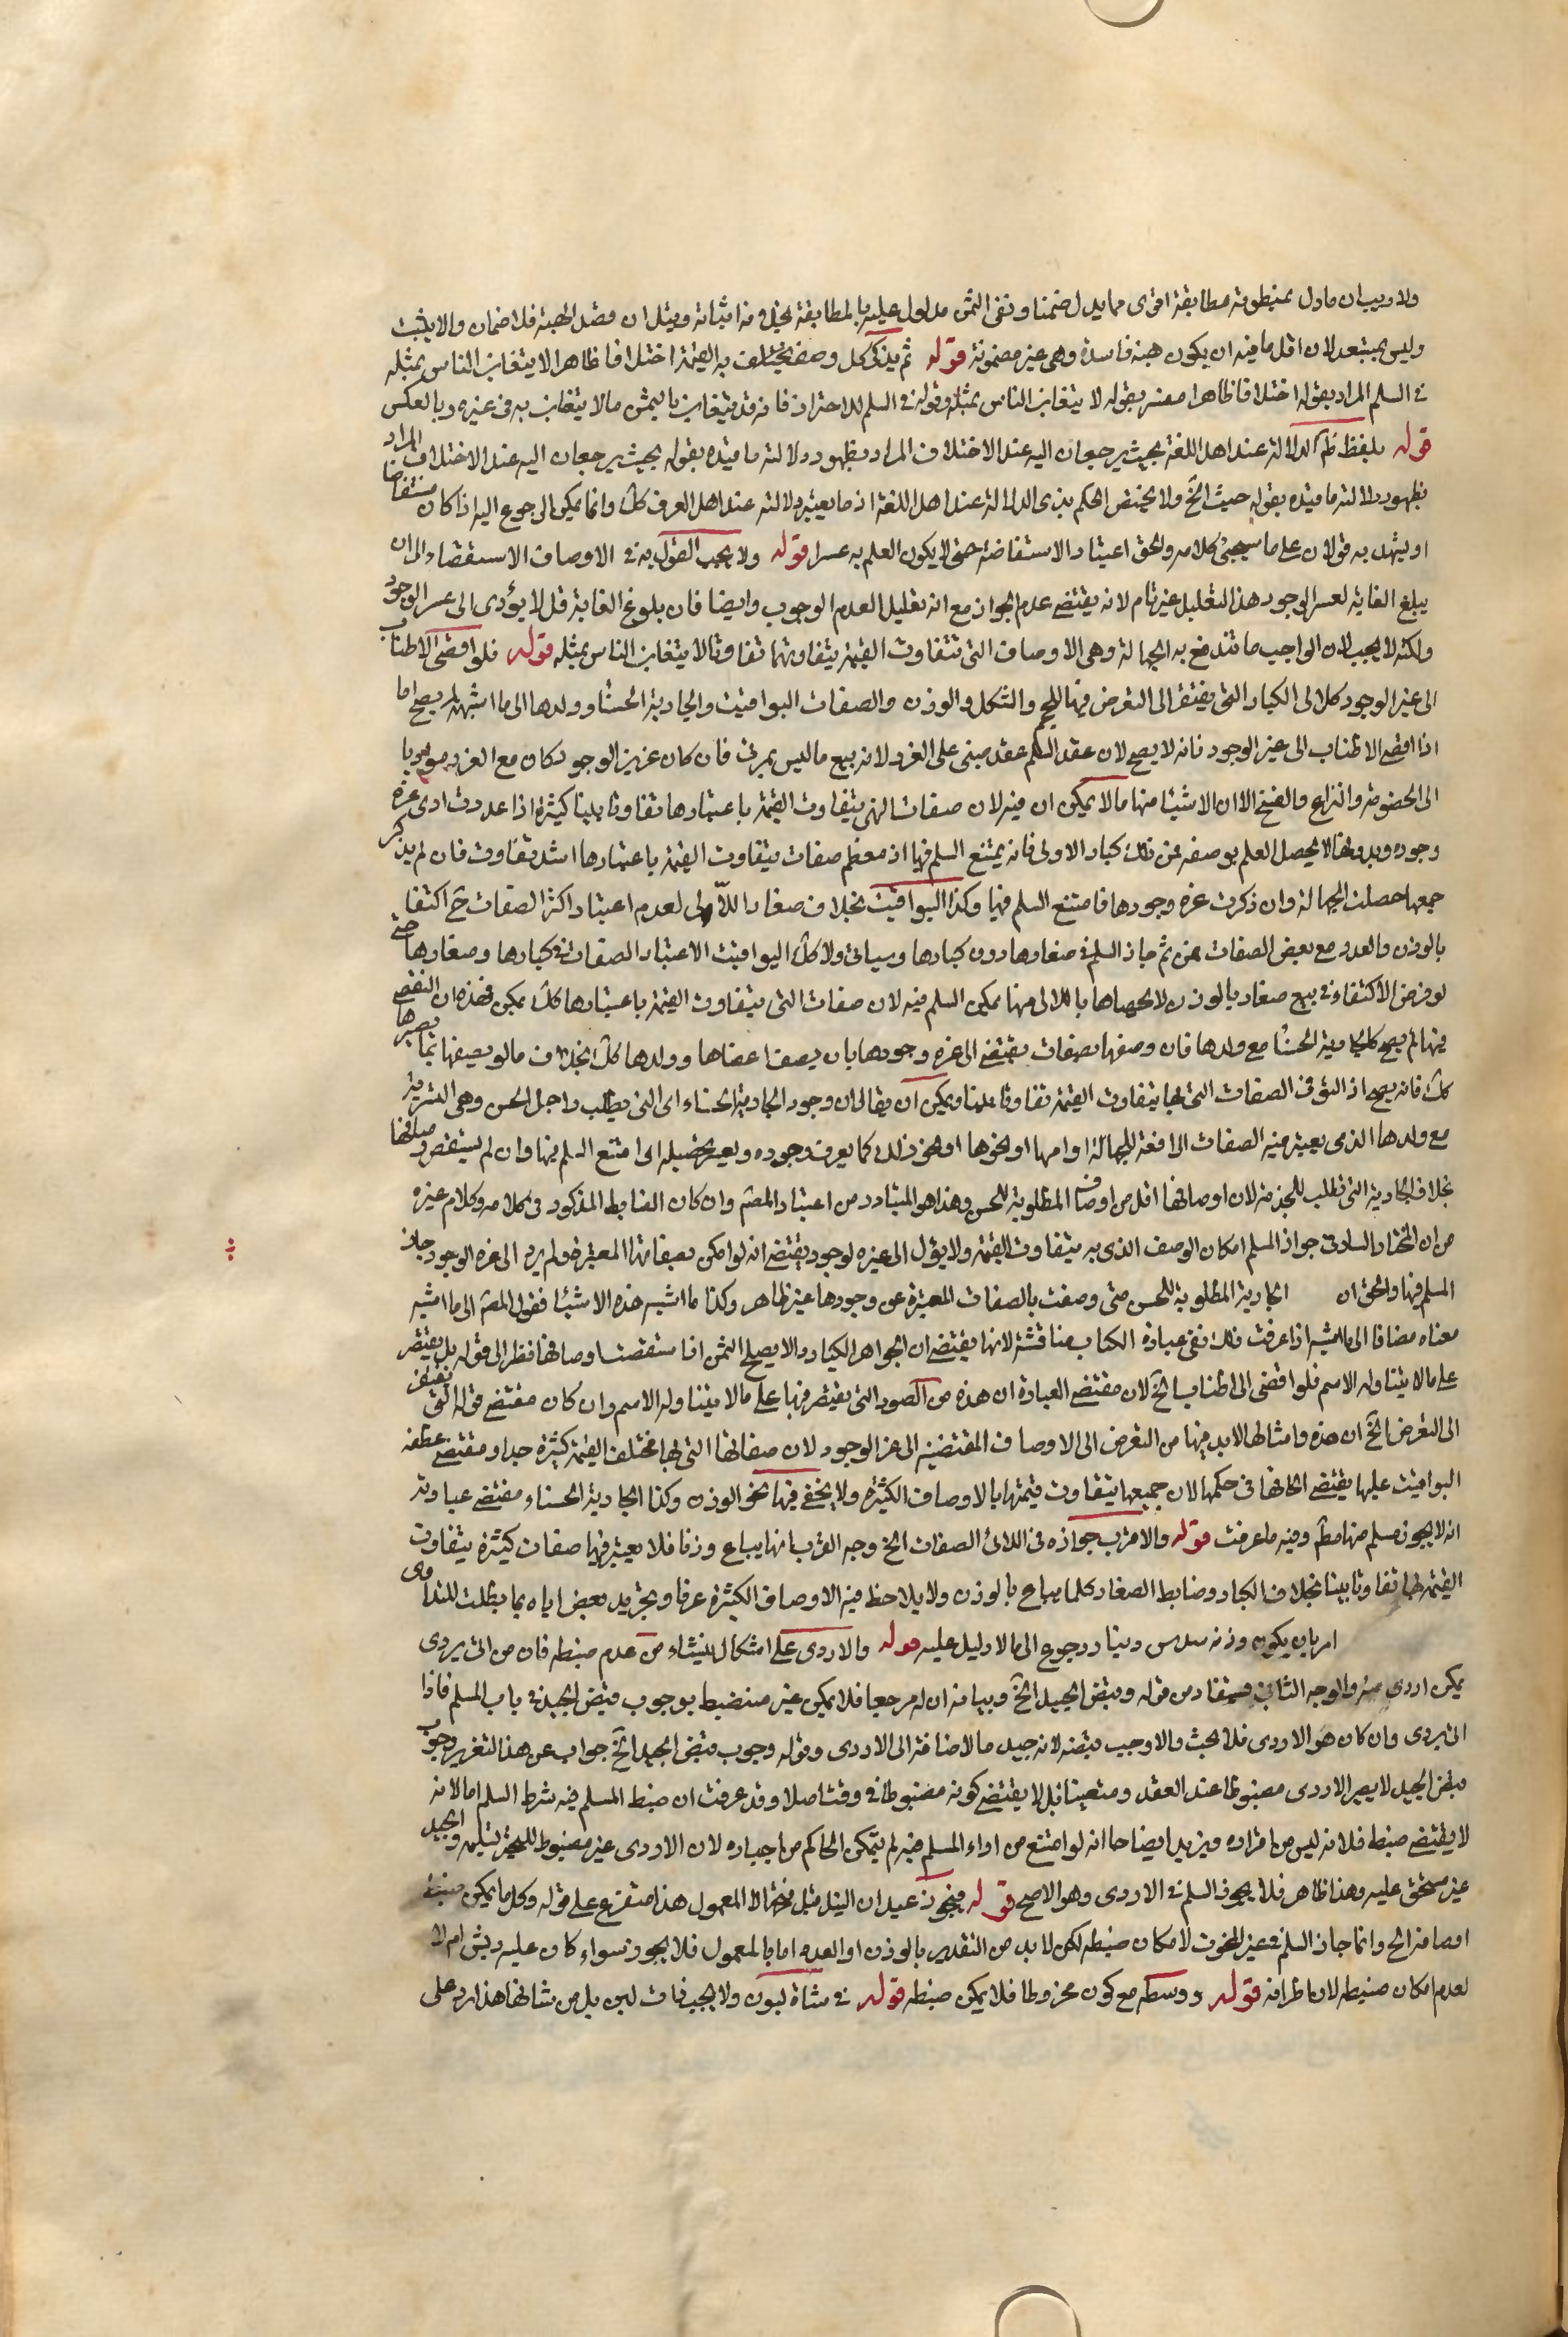 ولا ريب ان ما دل بمنطوقه مطابقة اقوى مما يدل تضمنا ونفى الثمن مدلول عليه بالمطابقة بخلاف اثباته وقيل ان قصد الهبة فلا ضمان والا يثبت
وليس ببعيد لان اقل ما فيه ان يكون هبة فاسدة وهى غير مضمونة قوله ثم يذكر كل وصف يختلف به القيمة اختلافا ظاهرا لا يتغابن الناس بمثله
فى السلم المراد بقوله اختلافا ظاهرا مفسر بقوله لا يتغابن الناس بمثله وقوله فى السلم للاحتراز فانه قد يتغابن بالثمن ما لا يتغابن به فى غيره وبالعكس
قوله بلفظ ظاهر الدلالة عند اهل اللغة بحيث يرجعان اليه عند الاختلاف المراد بظهور دلالته ما قيده بقوله بحيث يرجعان اليه عند الاختلاف المراد
بظهور دلالته ما قيده بقوله حيث الخ ولا يختص الحكم بذى الدلالة عند اهل اللغة اذ ما يعتبر دلالته عند اهل العرف كك وانما يمكن الرجوع اليه اذا كان مستفاضا
او يشهد به قولان على ما سيجئ كلامه والحق اعتبار الاستفاضة حتى لا يكون العلم به عسرا قوله ولا يجب القول به فى الاوصاف الاستقضاء الى ان
يبلغ الغاية لعسر الوجود هذا التعليل غير تام لانه يقتضى عدم الجواز مع انه تعليل العدم الوجوب وايضا فان بلوغ الغاية قد لا يؤدى الى عسر الوجود
ولكنه لا يجب لان الواجب ما تندفع به الجهالة وهى الاوصاف التى تتفاوت القيمة بتفاوتها تفاوتا لا يتغابن الناس بمثله قوله فلو افضى الاطناب
الى عز الوجود كاللالى الكبار التى يفتقر الى التعرض فيها للحجم والشكل والوزن والصفات اليواقيت والجارية الحسنا وولدها الى ما اشبهه لم يصح اما
اذا افضى الاطناب الى عز الوجود فانه لا يصح لان عقد السلم عقد مبنى على الغرر لانه بيع ما ليس بمرئى فان كان عزيز الوجود كان مع الغرر مؤديا
الى الخصومة والنزاع والفسخ الا ان الاشيا منها ما لا يمكن ان فيه لان صفات التى يتفاوت القيمة باعتبارها تفاوتا بينا كثيرة اذا عددت ادى عزة
وجوده وبدونها لا يحصل العلم بوصفه فمن ذلك كبار الاولى فانه يمتنع السلم فيها اذ معظم صفات يتفاوت القيمة باعتبارها اشد تفاوت فان لم يذكر
جمعها حصلت الجهالة وان ذكرت عزه وجودها فامتنع السلم فيها وكذا اليواقيت بخلاف صغار اللآلى لعدم اعتبار اكثر الصفات ح اكتفا
بالوزن والعدد مع بعض الصفات فمن ثم جاز السلم فى صغارها دون كبارها وسياتى ولا كك اليواقيت الاعتبار الصفات فى كبارها وصغارها حتى
لو فرض الاكتفاء فى بيع صغار بالوزن لا لحصاها باللالى منها يمكن السلم فيه لان صفات التى يتفاوت القيمة باعتبارها كك يمكن فهذه ان النقص
فيها لم يصح كالجارية الحسنا مع ولدها فان وصفها بصفات يقتضى الى عزه وجودها بان يصف اعضاها وولدها كك بخلاف ما لو يصفها بما يصيرها
كك فانه يصح اذ التوفى الصفات التى بها يتفاوت القيمة تفاوتا بينا ويمكن ان يقال ان وجود الجارية الحسناء اى التى يطلب لاجل الحسن وهى السرية
مع ولدها الذى يعتبر فيه الصفات الرافعة للجهالة او امها او نحوها او نحو ذلك كما يعرف وجوده ويعسر تحصيله اى امتنع السلم فيها وان لم يستقص صفاتها
بخلاف الجارية التى تطلب للخدمة لان اوصافها اقل من اوصاف المطلوبة للحسن وهذا هو المتبادر من اعتبار المصنف وان كان الضابط المذكور فى كلامه وكلام غيره
من ان المختار السلم فى جواز المسلم امكان الوصف الذى به يتفاوت القيمة ولا يؤل الى عزه لوجود يقتضى انه لو امكن بصفاتها المعتبرة ولم يرد الى عزه الوجود جاز
المسلم فيها والحق ان الجارية المطلوبة للحسن متى وصفت بالصفات المعتبرة عن وجودها غير ظاهر وكذا ما اشبه هذه الاشيا فقول المصنف الى ما اشبه
معناه مضافا الى ما اشبه اذا عرفت ذلك ففى عبارة الكتاب مناقشة لانها يقتضى ان الجواهر الكبار والا يصلح الثمن اذا استقصت اوصافها نظرا الى قوله بل يقتصر
على ما لا يتناوله الاسم فلو افضى الى اطناب الخ لان مقتضى العبارة ان هذه من الصور التى يقتصر فيها على ما لا يتناوله الاسم وان كان مقتضى قوله التى تفتقر
الى التعرض الخ ان هذه وامثالها لا بد فيها من التعرض الى الاوصاف المفضية الى عز الوجود لان صفاتها التى بها مختلف القيمة كثيرة جدا ومقتضى عطفه
اليواقيت عليها يقتضى الحاقها فى حكمها لان جميعها يتفاوت قيمتها بالاوصاف الكثيرة ولا يخفى فيها نحو الوزن وكذا الجارية الحسناء مقتضى عبارته
انه لا يجوز مسلم منها مطلقا وفيه ما عرفت قوله والاقرب جوازه فى اللالئ الصغار الخ وجه القرب انها يباع وزنا فلا يعتبر فيها صفات كثيرة يتفاوت
القيمة لها تفاوتا بينا بخلاف الكبار وضابط الصغار كلما يباع بالوزن ولا يلاحظ فيه الاوصاف الكثيرة عرفا وبجديد بعض اياه بما يطلب للتداوى
امر بان يكون وزنه سدس دينار رجوع الى ما لا دليل عليه قوله والاردى على اشكال ينشاء من عدم ضبطه فان من اى يردى
يمكن اردى منه والوجه الثانى مستفاد من قوله وقبض الجيد الخ وبيانه ان له مرجعا فلا يمكن غير منضبط بوجوب قبض الجيد فى باب المسلم فاذا
اى يردى وان كان هو الاردى فلا بحث والا وجب قبضه لانه جيد بالاضافة الى الاردى وقوله وجوب قبض الجيد الخ جواب عن هذا لتقرير وجوب
قبض الجيد لا يصير الاردى مضبوطا عند العقد ومتعينا بل لا يقتضى كونه مضبوطا فى وقت اصلا وقد عرفت ان ضبط المسلم فيه شرط السلم اما لانه
لا يقتضى ضبط فلانه ليس من افراده ويزيد ايضاحا انه لو امتنع من اداء المسلم فيه لم يتمكن الحاكم من اجباره لان الاردى غير مضبوط للجبر بتسليمه والجيد
غير مستحق عليه وهذا ظاهر فلا يجوز السلم فى الاردى وهو الاصح قوله فيجوز عيدان النبل قبل نحتها لا المعمول هذا متفرع على قوله وكل ما يمكن ضبط
اوصافه الخ وانما جاز السلم فى غير المنحوت لامكان ضبطه لكن لا بد من التقدير بالوزن او العدد اما بالمعمول فلا يجوز سواء كان عليه ريش ام لا
لعدم امكان ضبطه لان اطرافه قوله ووسطه مع كون مخروطا فلا يمكن ضبطه قوله فى شاة لبون ولا يجب ذات لبن بل من شانها هذا رد على